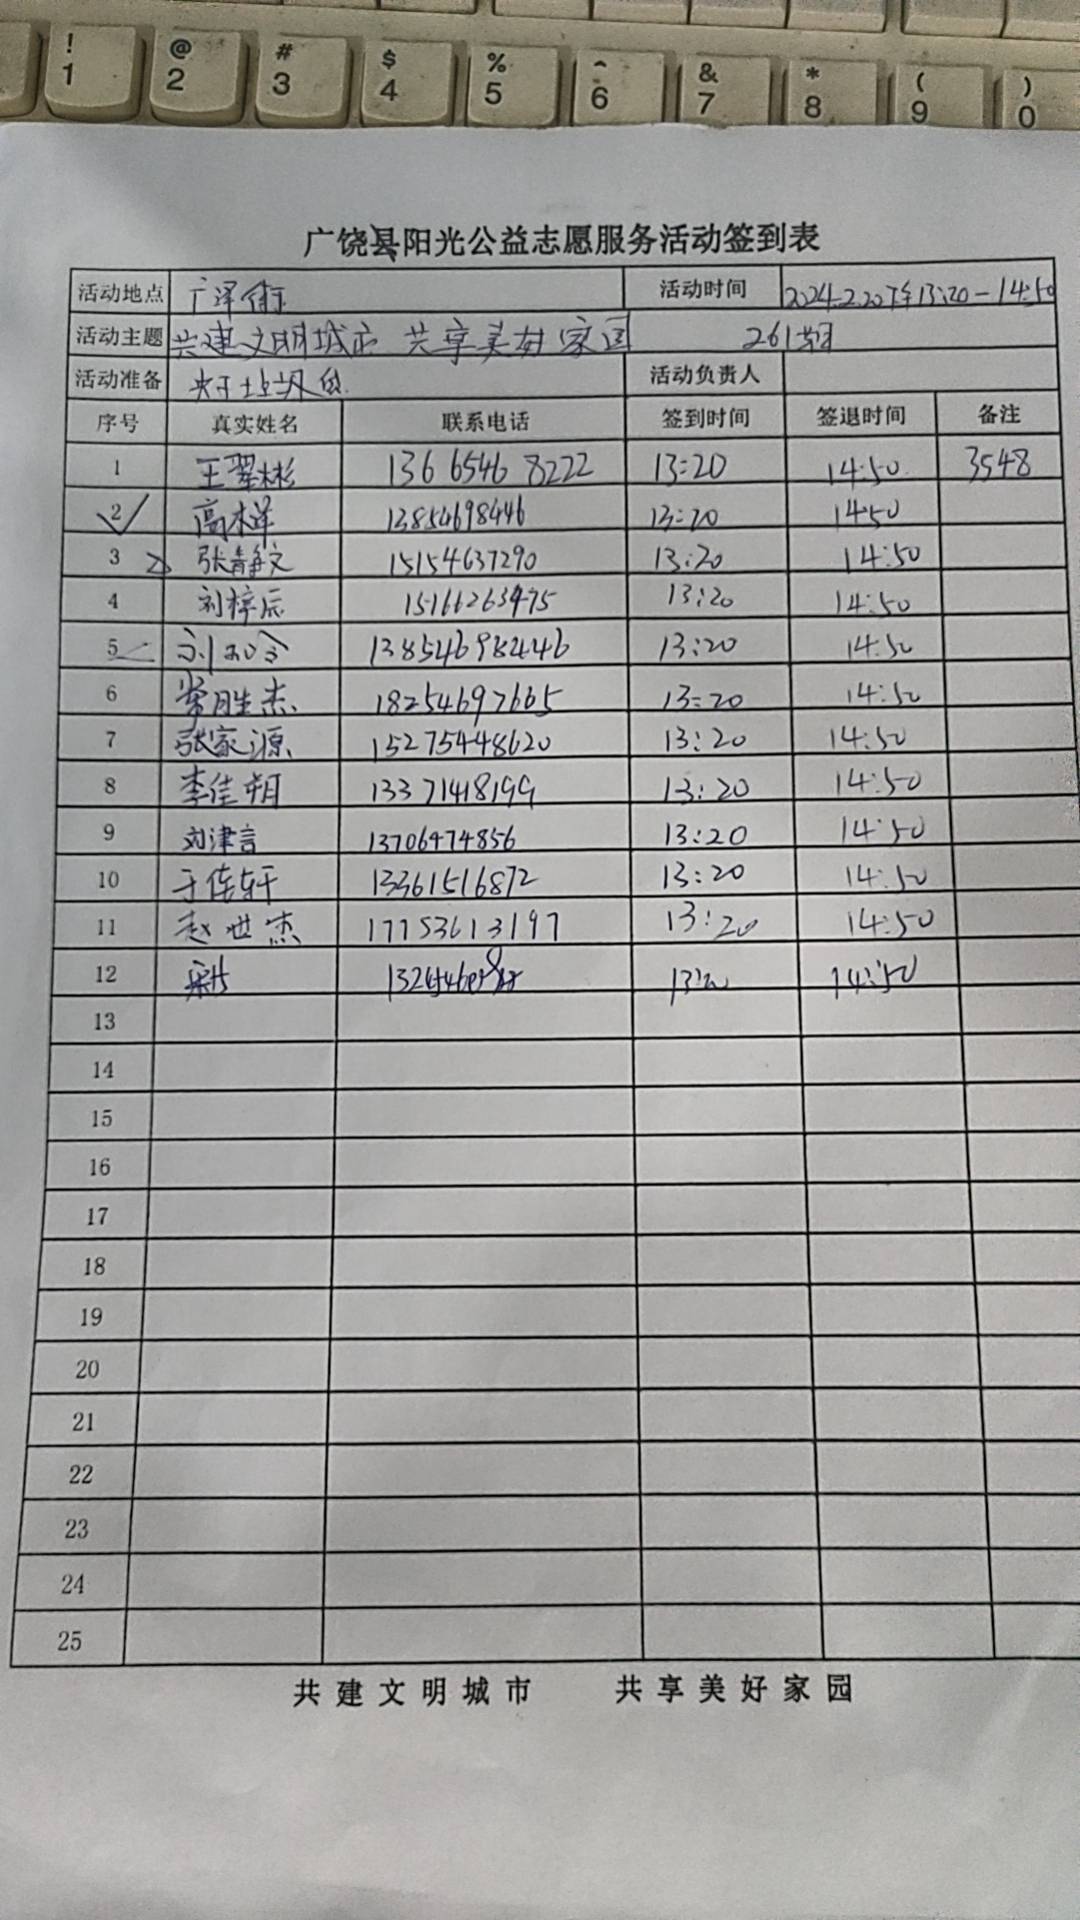 ! @ # $ % ^ & * ( )
1 2 3 4 5 6 7 8 9 0
广饶县阳光公益志愿服务活动签到表
活动地点 广泽街 活动时间 2024.2.20下午13:20-14:50
活动主题 共建文明城市 共享美好家园 261期
活动准备 夹子 垃圾包 活动负责人
序号 真实姓名 联系电话 签到时间 签退时间 备注
1 王翠彬 136 6546 8222 13:20 14:50 3548
2 高梓 13854698446 13:20 14:50
3 张静文 15154637290 13:20 14:50
4 刘梓辰 15166263475 13:20 14:50
5 13854698446 13:20 14:50
6 常胜杰 18254697665 13:20 14:50
7 张家源 15275448620 13:20 14:50
8 李佳朔 13371418199 13:20 14:50
9 刘津言 13706474856 13:20 14:50
10 于佳轩 13361516872 13:20 14:50
11 赵世杰 17753613197 13:20 14:50
12 13:20 14:50
13
14
15
16
17
18
19
20
21
22
23
24
25
共建文明城市 共享美好家园